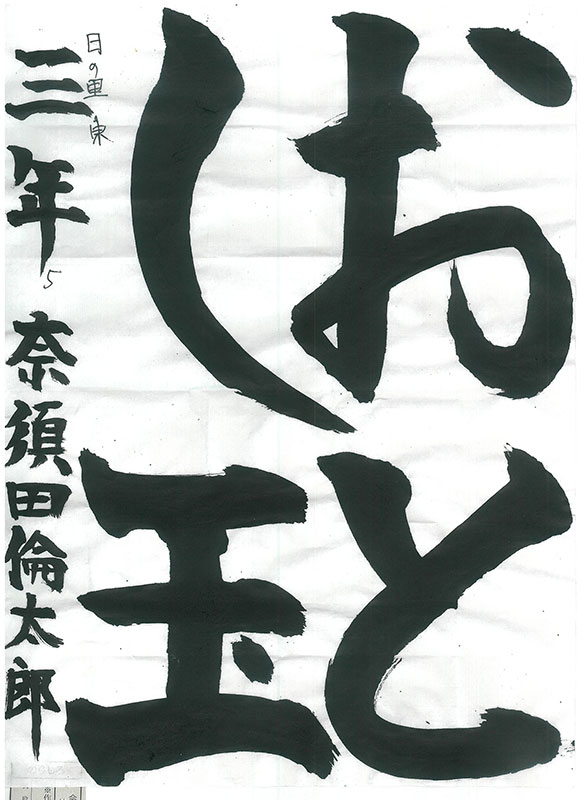 おと
し玉
三年 奈須田倫太郎
日の里東
5